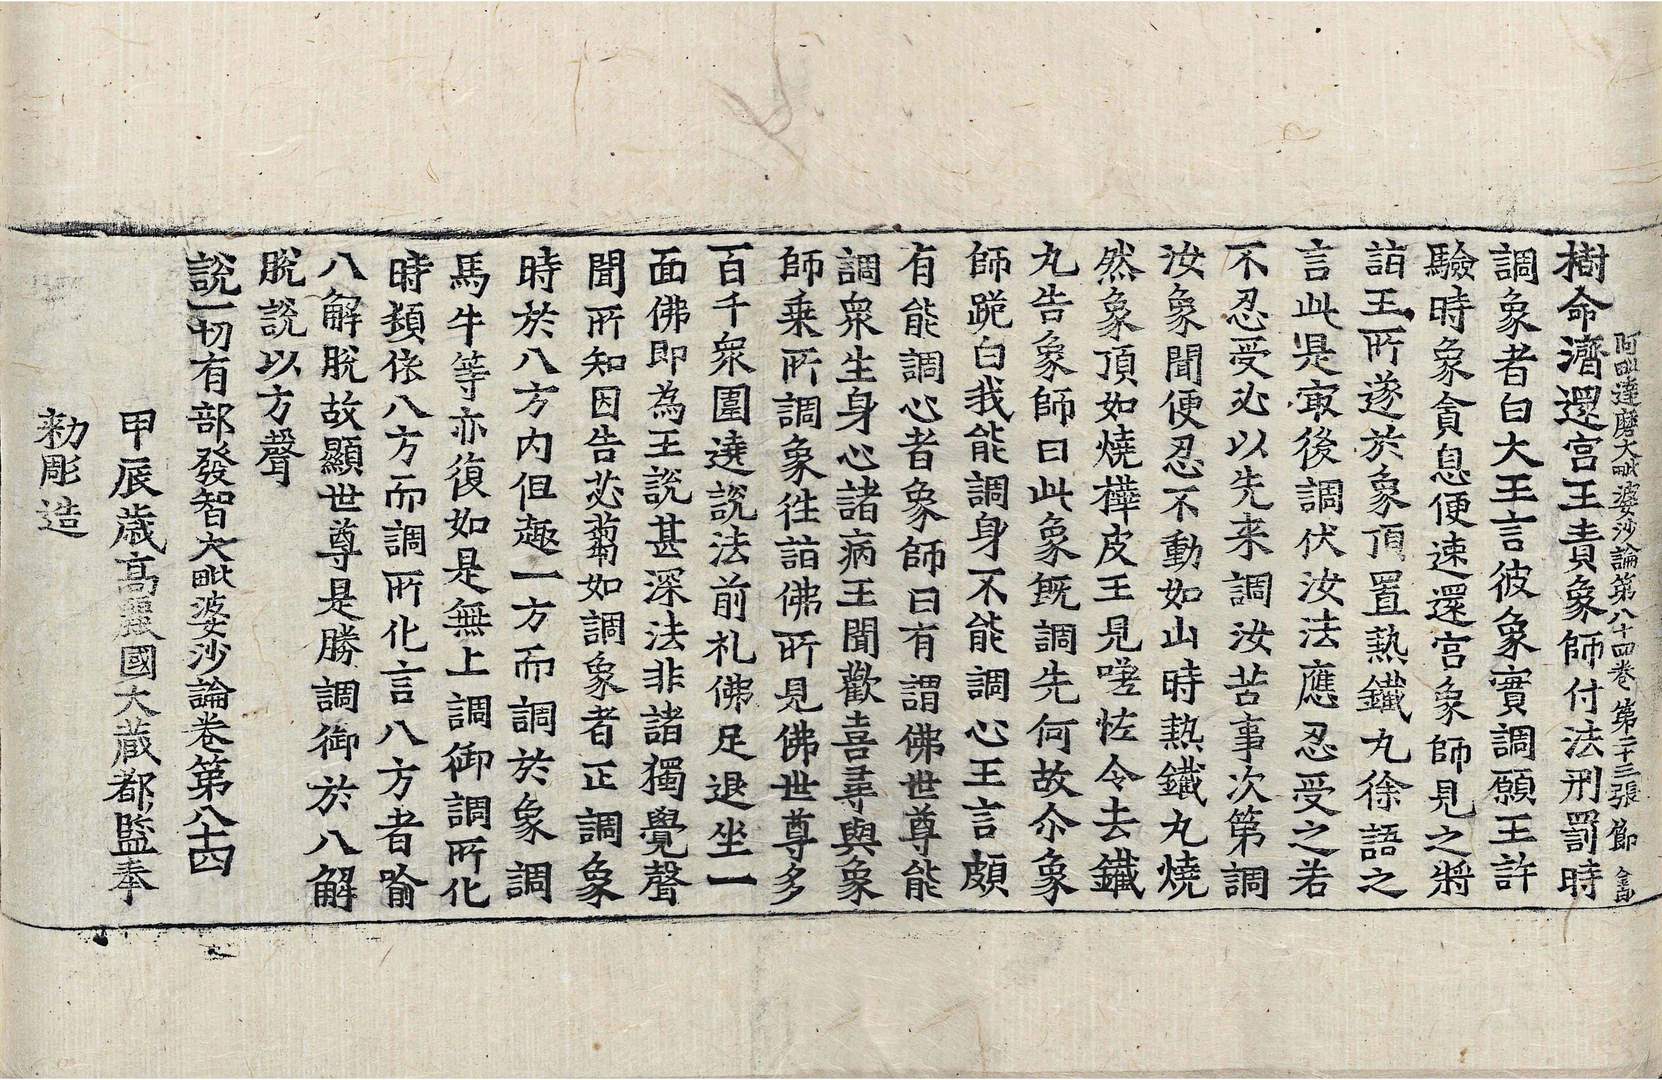 阿毗達磨大毗婆沙論第八十四卷 第二十三張 節
樹命濟還宮王責象師付法刑罰時
調象者白大王言彼象實調願王許
驗時象貪息便速還宮象師見之將
詣王所遂於象頂置熱鐵丸徐語之
言此是冣後調伏汝法應忍受之若
不忍受必以先来調汝苦事次第調
汝象聞便忍不動如山時熱鐵丸燒
然象頂如燒樺皮王見嗟恠令去鐵
丸告象師曰此象旣調先何故尒象
師跪白我能調身不能調心王言頗
有能調心者象師曰有謂佛世尊能
調衆生身心諸病王聞歡喜尋與象
師乗所調象徃詣佛所見佛世尊多
百千衆圍遶說法前札佛足退坐一
面佛即為王說甚深法非諸獨覺聲
聞所知因告苾蒭如調象者正調象
時於八方內但趣一方而調於象調
馬牛等亦復如是無上調御調所化
時頬依八方而調所化言八方者喻
八解脫故顯世尊是勝調御於八解
脫說以方聲
說一切有部發智大毗婆沙論卷第八十四
甲辰歲高麗國大藏都監奉
勑彫造